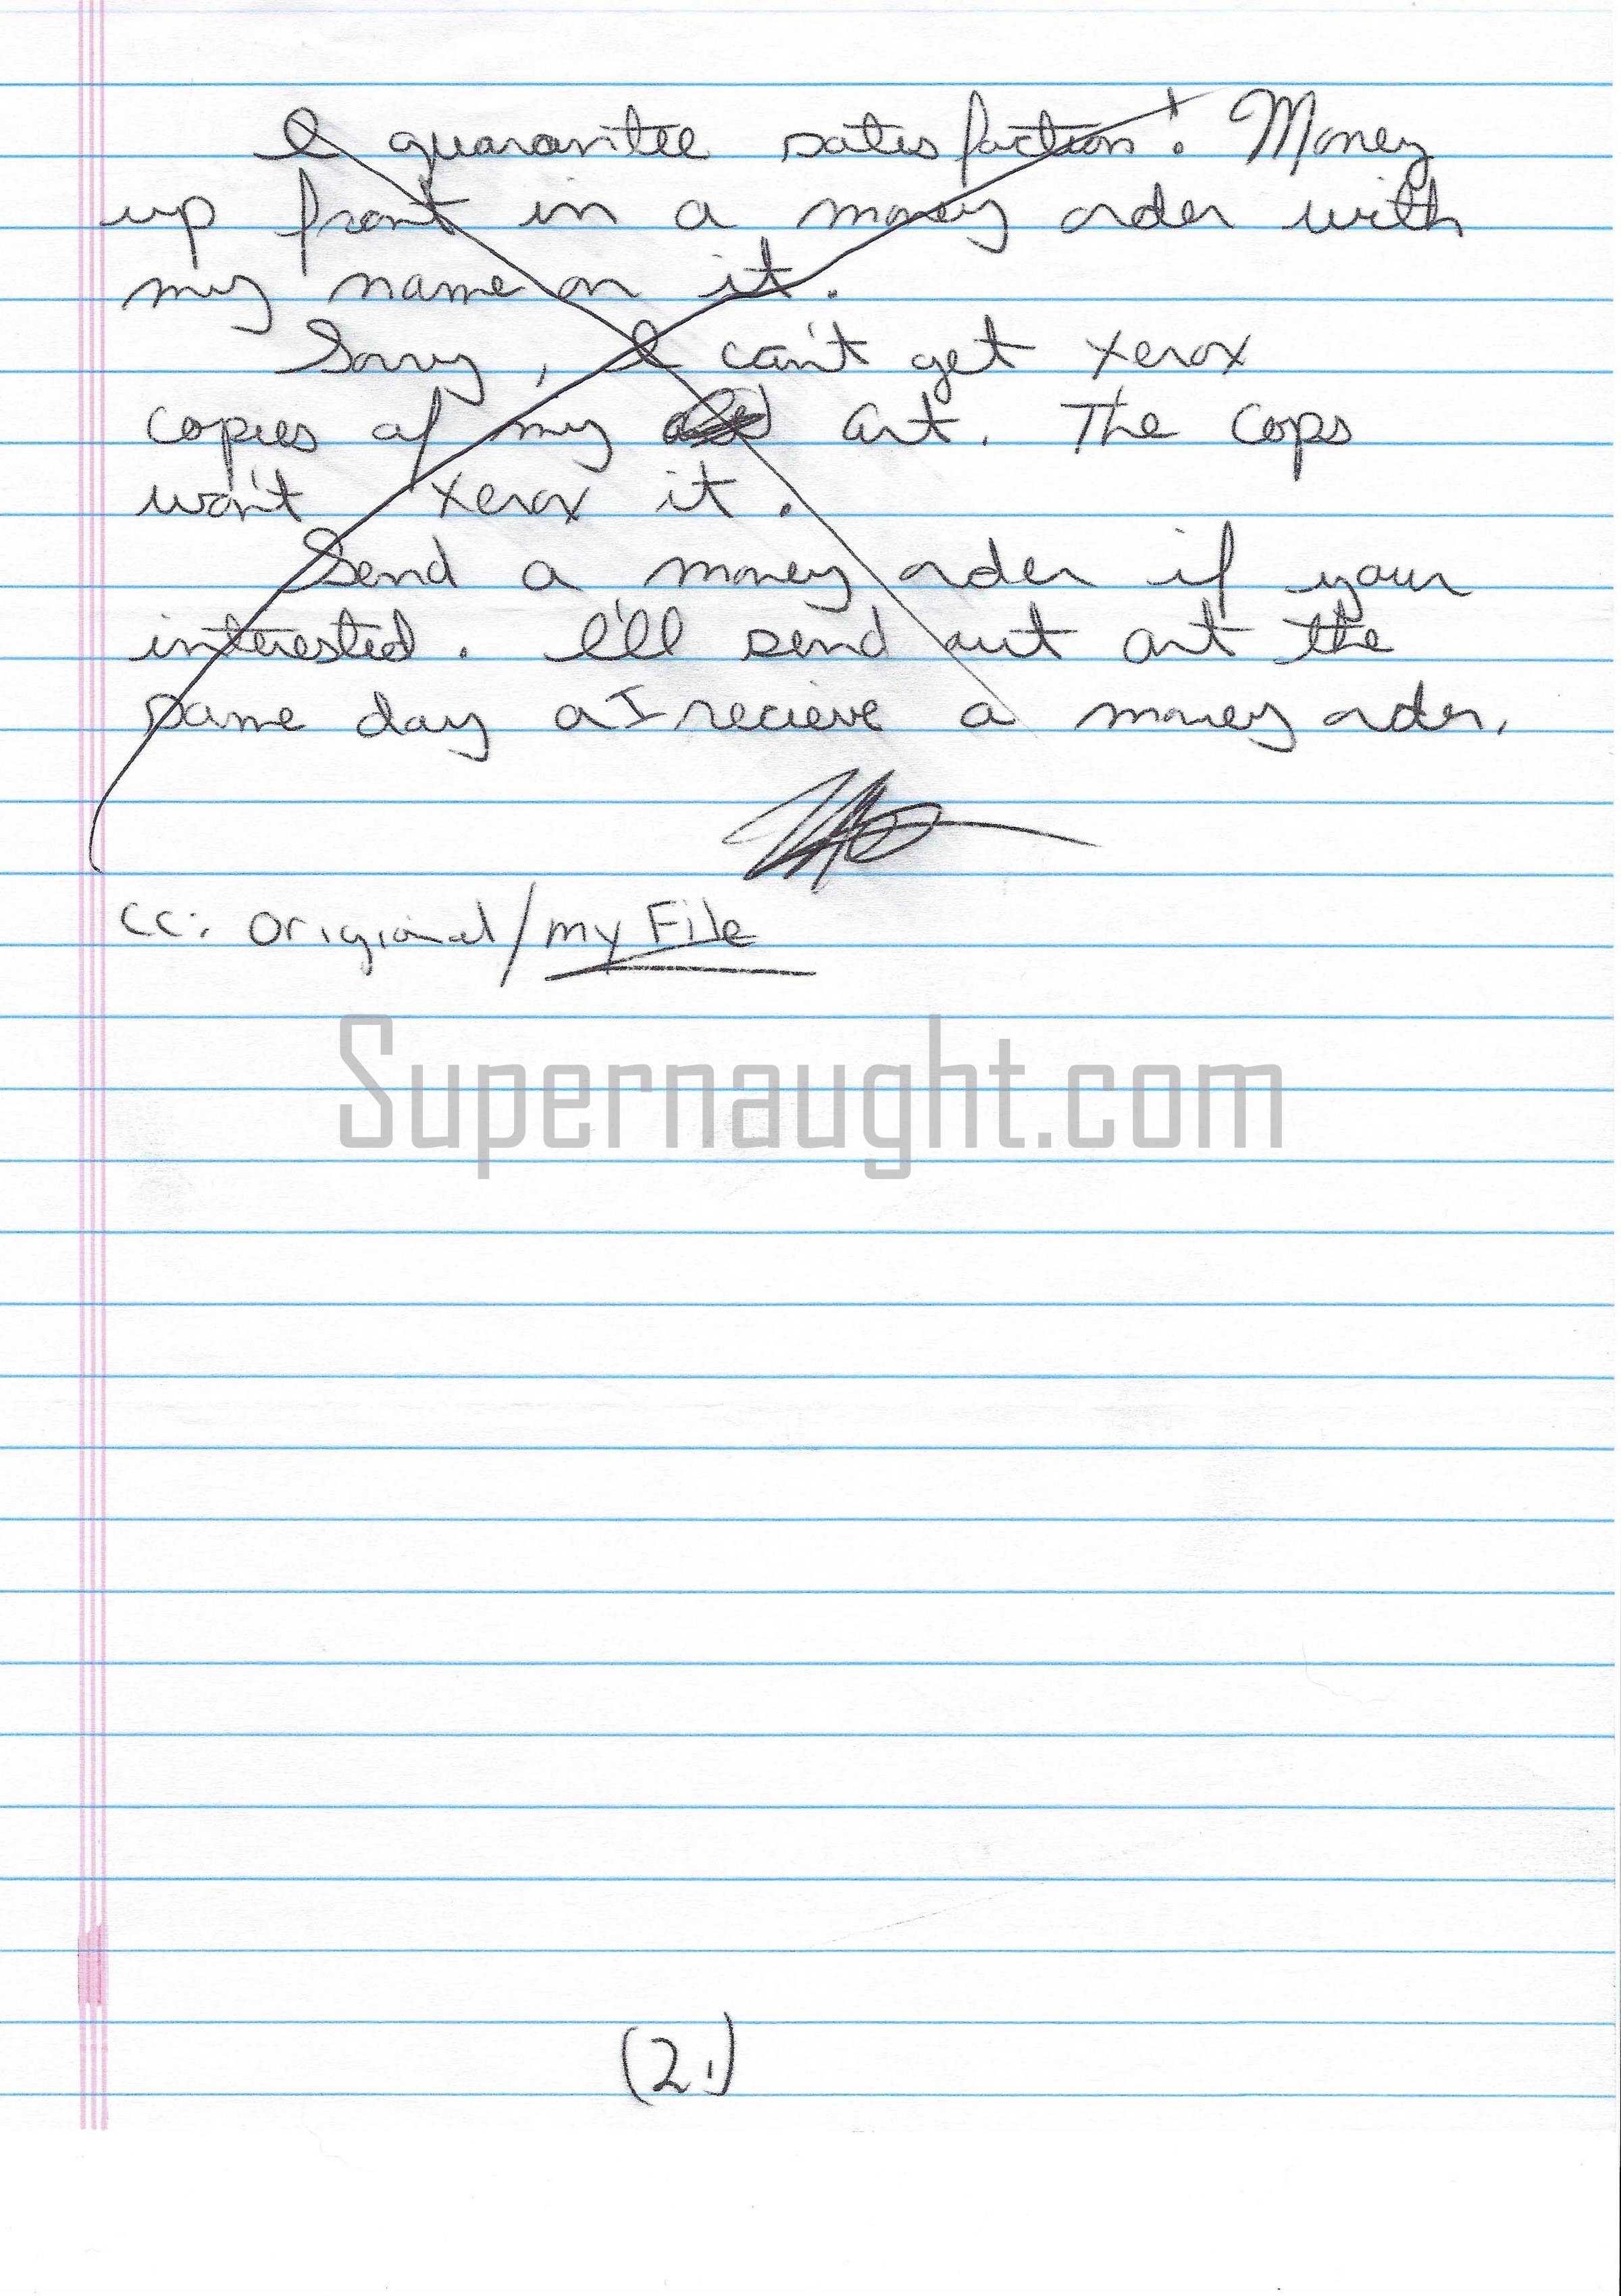 I guarantee satisfaction! Money
up front in a money order with
my name on it.
Sorry, I can't get xerox
copies of my art. The cops
won't xerox it.
Send a money order if your
interested. I'll send out art the
same day a I recieve a money order.
cc: Origional/my File
Supernaught.com
(2.)